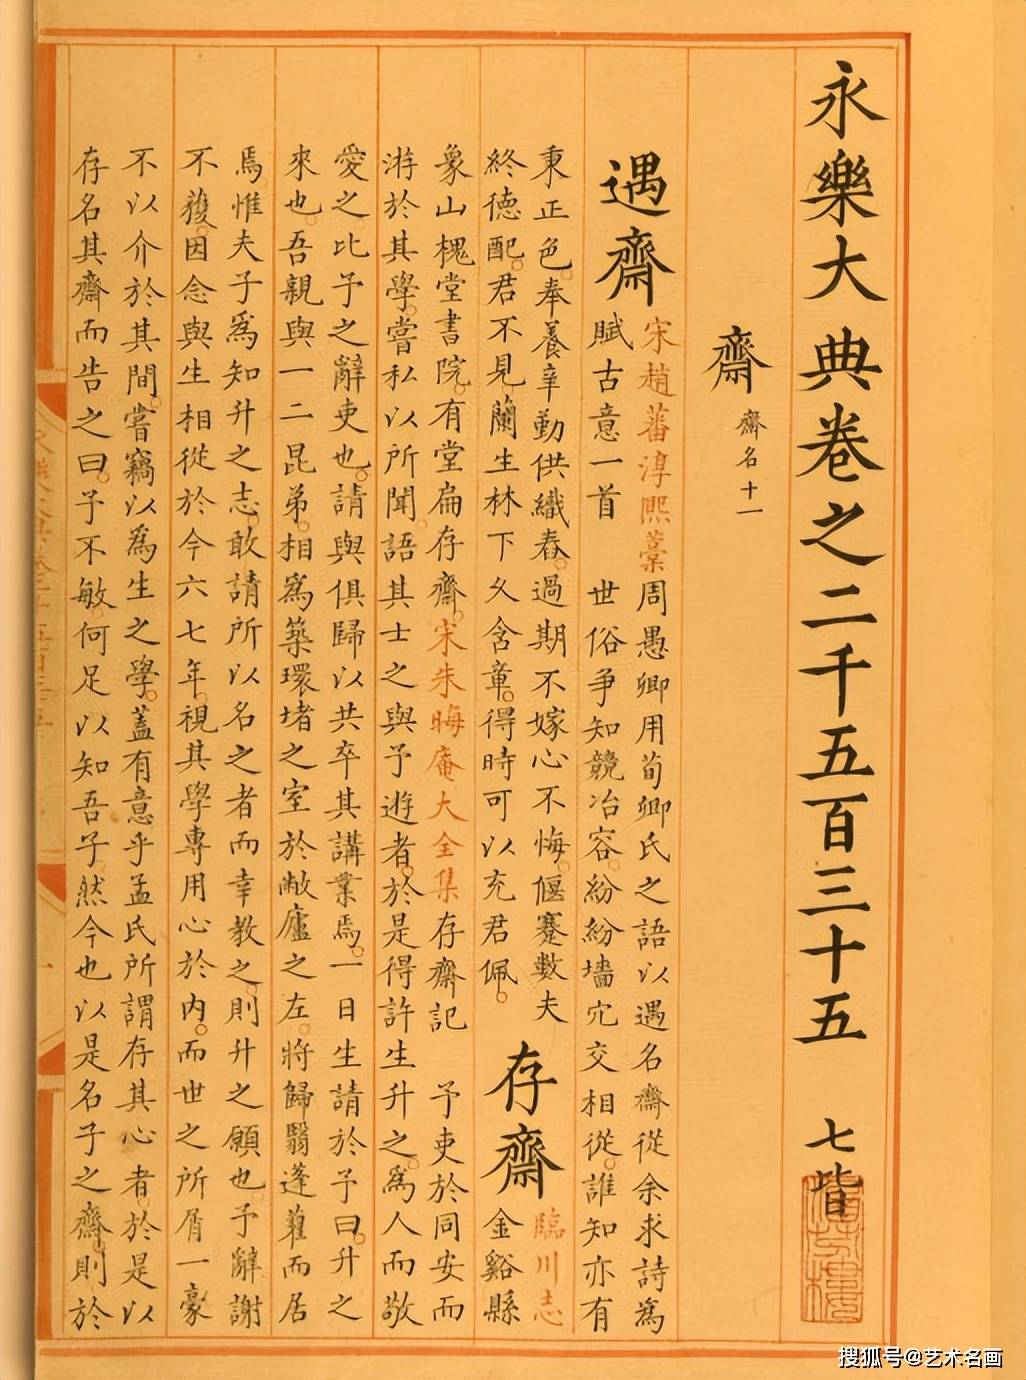 永樂大典卷之二千五百三十五 七皆
齋 齋名十一
遇齋
宋趙蕃淳熙藁周愚卿用荀卿氏之語以遇名齋從余求詩爲
賦古意一首 世俗爭知競冶容。紛紛墻穴交相從。誰知亦有
秉正色。奉養辛勤供織舂。過期不嫁心不悔。偃蹇數夫
終德配。君不見。蘭生林下久含章。得時可以充君佩。
存齋
臨川志
金谿縣
象山槐堂書院。有堂扁存齋。宋朱晦庵大全集存齋記 予吏於同安而
游於其學。嘗私以所聞。語其士之與予遊者。於是得許生升之。爲人而敬
愛之。比予之辭吏也。請與俱歸以共卒其講業焉。一日生請於予曰。升之
來也。吾親與一二昆弟。相爲築環堵之室於敝廬之左。將歸翳蓬藋而居
焉。惟夫子爲知升之志。敢請所以名之者而幸教之。則升之願也。予辭謝
不獲。因念與生相從於今六七年。視其學專用心於內。而世之所屑一豪
不以介於其間。嘗竊以爲生之學。蓋有意乎孟氏所謂存其心者。於是以
存名其齋而告之曰。予不敏。何足以知吾子。然今也以是名子之齋。則於
搜狐号@艺术名画